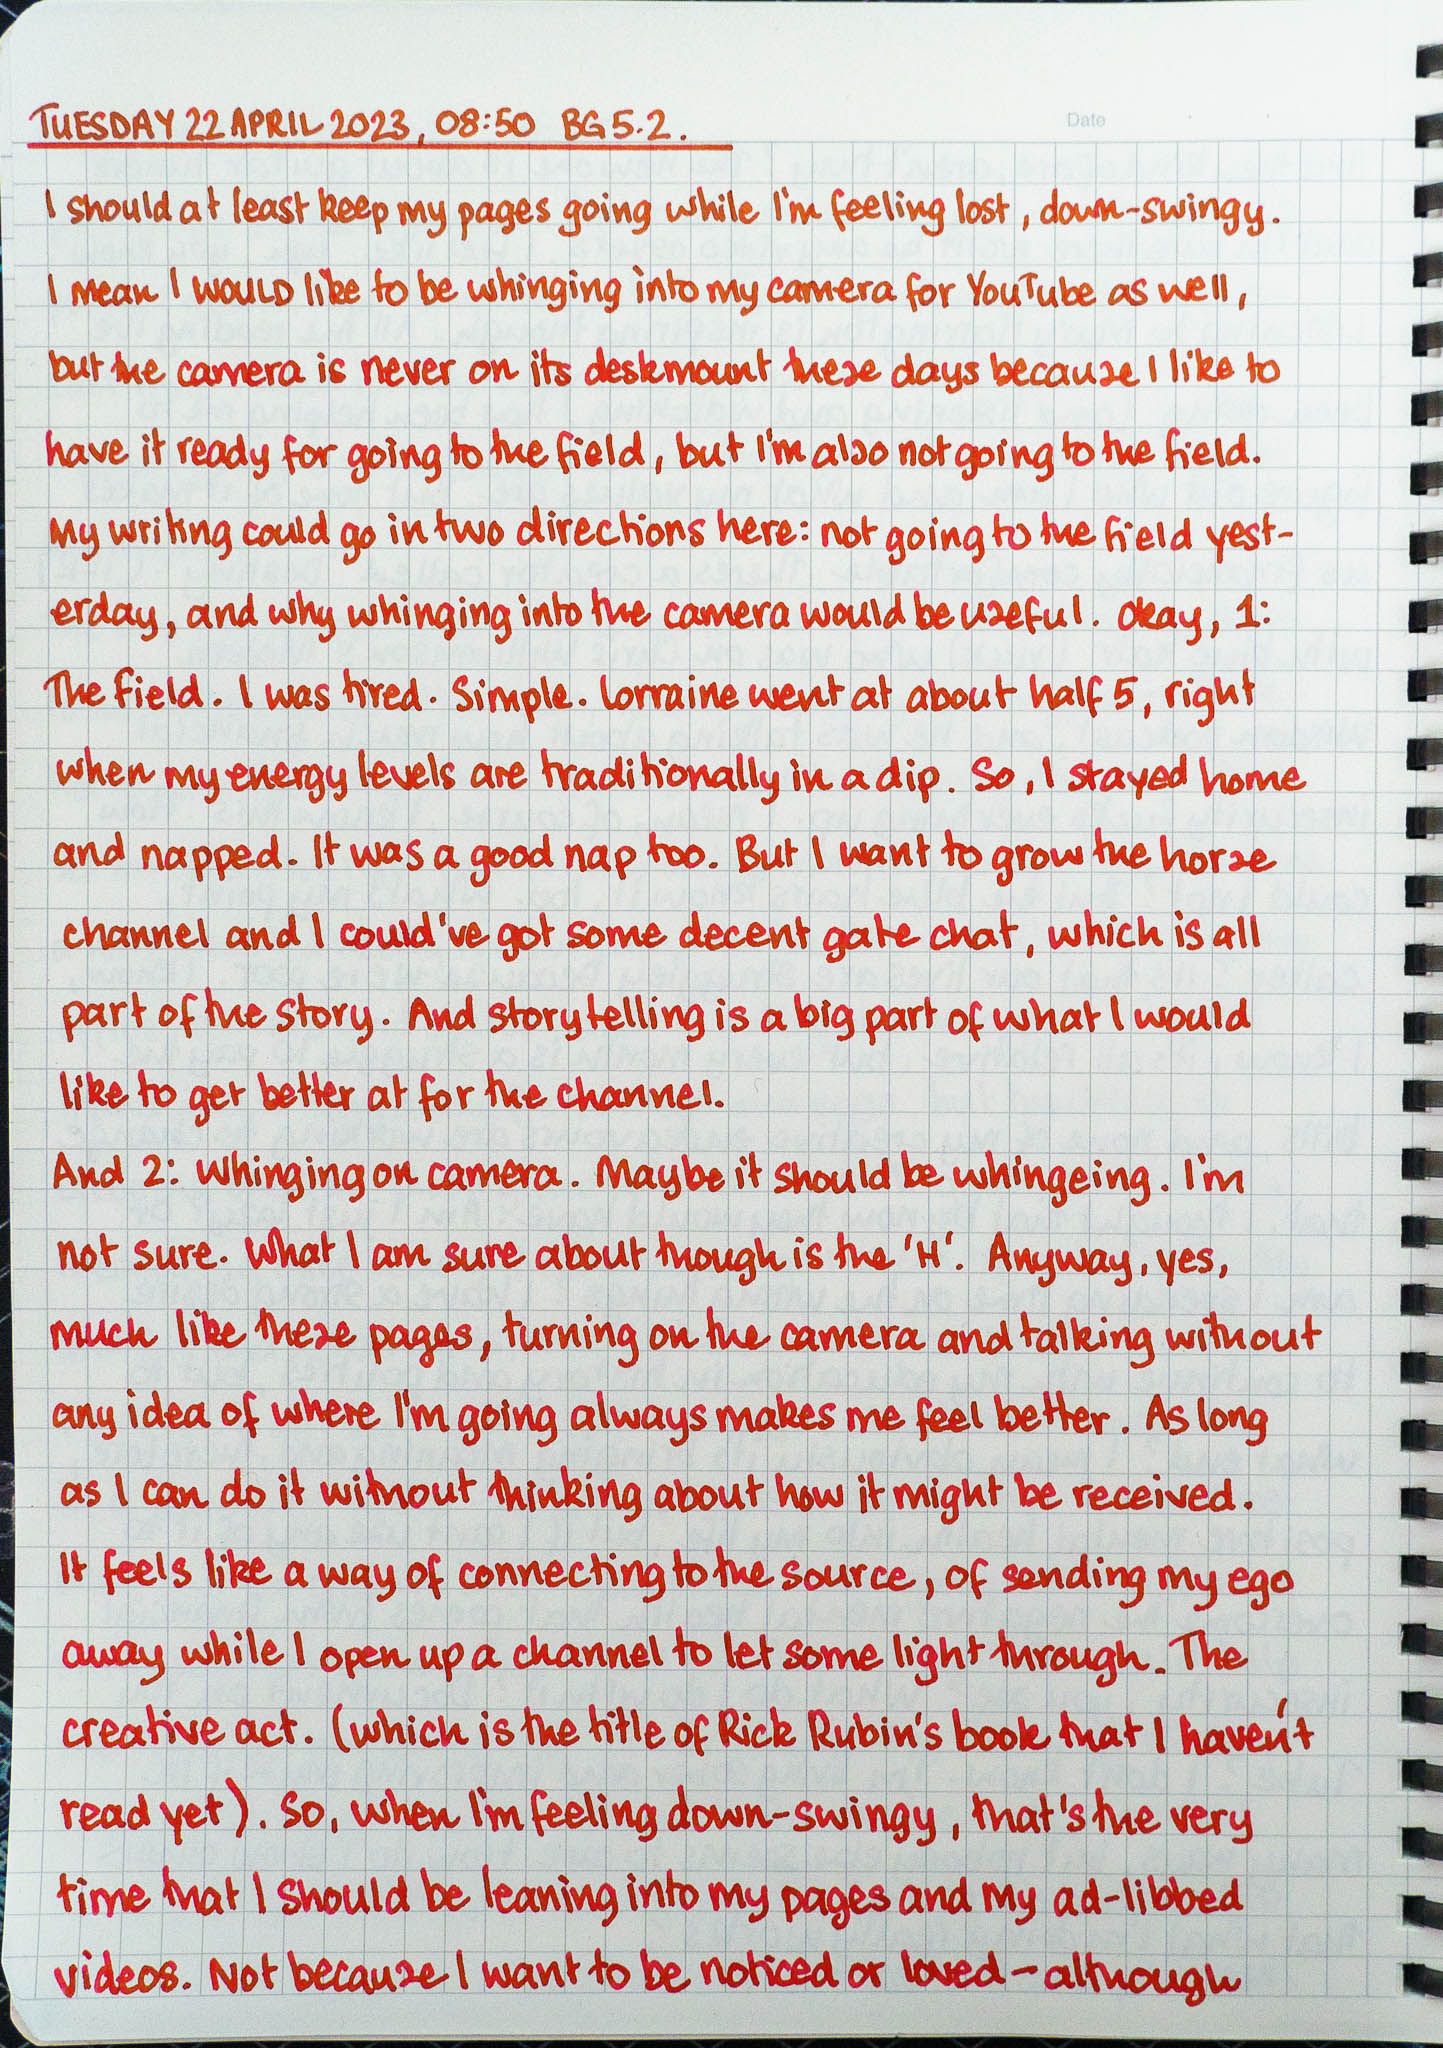 Date
TUESDAY 22 APRIL 2023, 08:50 BG 5.2.
I should at least keep my pages going while I'm feeling lost, down-swingy.
I mean I WOULD like to be whinging into my camera for YouTube as well,
but the camera is never on its deskmount these days because I like to
have it ready for going to the field, but I'm also not going to the field.
My writing could go in two directions here: not going to the field yest-
erday, and why whinging into the camera would be useful. Okay, 1:
The field. I was tired. Simple. Lorraine went at about half 5, right
when my energy levels are traditionally in a dip. So, I stayed home
and napped. It was a good nap too. But I want to grow the horse
channel and I could've got some decent gate chat, which is all
part of the story. And storytelling is a big part of what I would
like to get better at for the channel.
And 2: Whinging on camera. Maybe it should be whingeing. I'm
not sure. What I am sure about though is the 'H'. Anyway, yes,
much like these pages, turning on the camera and talking without
any idea of where I'm going always makes me feel better. As long
as I can do it without thinking about how it might be received.
It feels like a way of connecting to the source, of sending my ego
away while I open up a channel to let some light through. The
creative act. (which is the title of Rick Rubin's book that I haven't
read yet). So, when I'm feeling down-swingy, that's the very
time that I should be leaning into my pages and my ad-libbed
videos. Not because I want to be noticed or loved – although